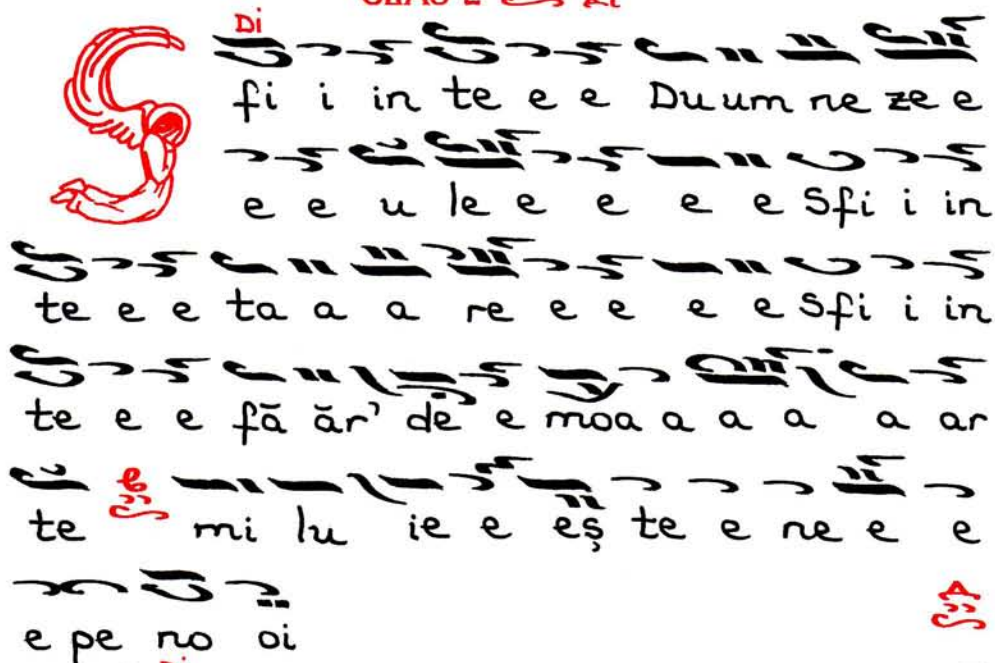 Di
Sfi i in te e e Du um ne ze e
e e u le e e e e Sfi i in
te e e ta a a re e e e e Sfi i in
te e e fă ăr' de e moa a a a a ar
te mi lu ie e eș te e ne e e
e pe no oi